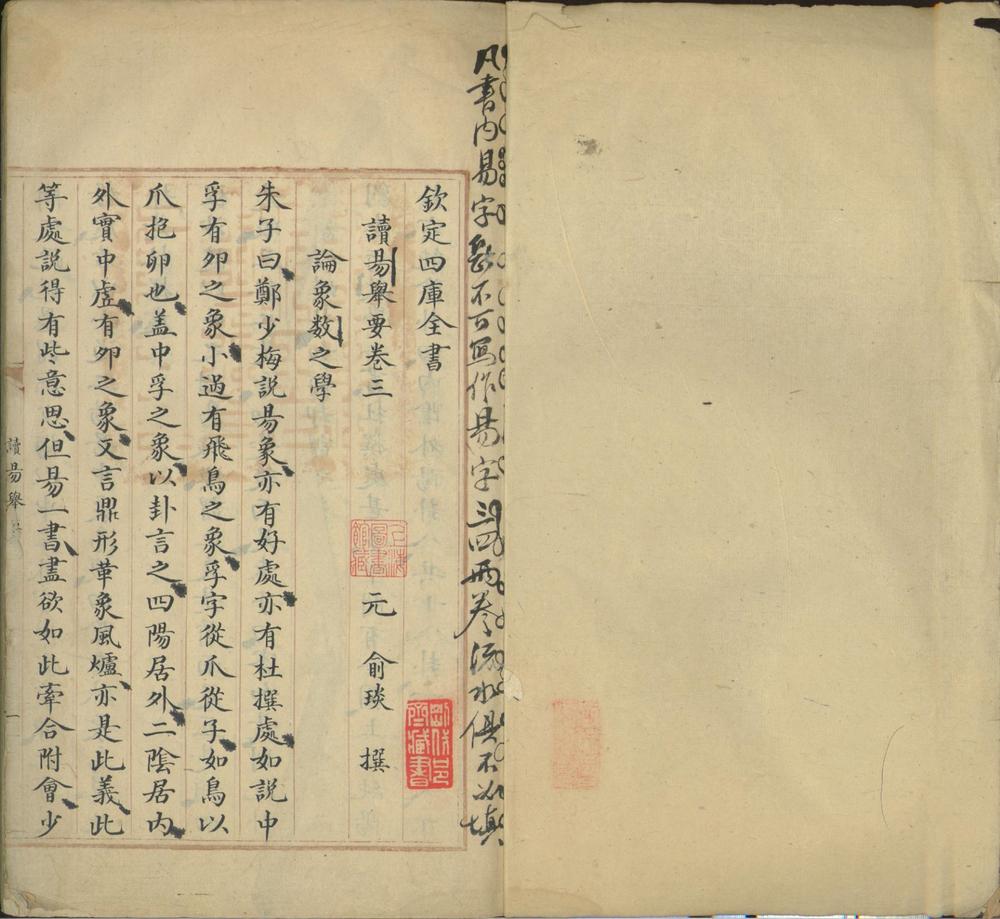 凡書内易字缺不可寫作昜字三四兩卷流水俱不必填
欽定四庫全書
讀昜舉要卷三
元 俞琰 撰
論象数之學
朱子曰鄭少梅説昜象亦有好處亦有杜撰處如説中
孚有卵之象小過有飛鳥之象孚字從爪從子如鳥以
爪抱卵也盖中孚之象以卦言之四陽居外二陰居内
外實中虚有卵之象又言鼎形革象風爐亦是此義此
等處説得有些意思但昜一書盡欲如此牽合附會少
讀昜舉要
一
上海圖書館藏